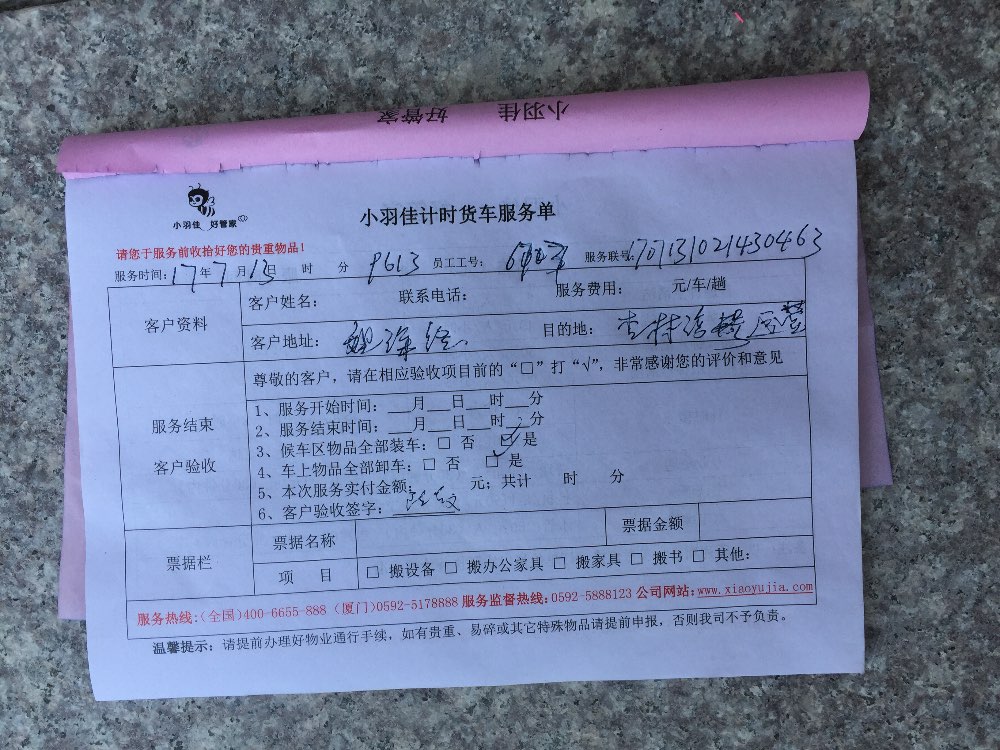 小羽佳 好管家
小羽佳 好管家
小羽佳计时货车服务单
请您于服务前收拾好您的贵重物品!
服务时间: 17年7月13日 时 分 9613 员工工号: 服务联号: 701131021430463
客户资料
客户姓名: 联系电话: 服务费用: 元/车/趟
客户地址: 目的地: 杏林
服务结束
客户验收
尊敬的客户，请在相应验收项目前的“□”打“√”，非常感谢您的评价和意见
1、服务开始时间: __月__日__时__分
2、服务结束时间: __月__日__时__分
3、候车区物品全部装车: □ 否 ☑ 是
4、车上物品全部卸车: □ 否 □ 是
5、本次服务实付金额: 元; 共计 时 分
6、客户验收签字:
票据栏
票据名称 票据金额
项 目 □ 搬设备 □ 搬办公家具 □ 搬家具 □ 搬书 □ 其他:
服务热线:(全国)400-6655-888 (厦门)0592-5178888 服务监督热线:0592-5888123 公司网站:www.xiaoyujia.com
温馨提示: 请提前办理好物业通行手续，如有贵重、易碎或其它特殊物品请提前申报，否则我司不予负责。